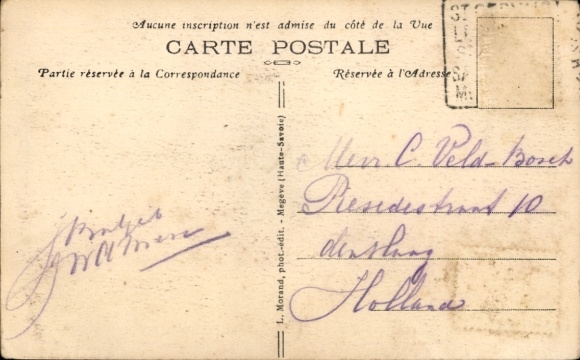 Aucune inscription n'est admise du côté de la Vue
CARTE POSTALE
Partie réservée à la Correspondance
Réservée à l'Adresse
ST
Mevr. C. Veld-Bosch
Riesedestraat 10
den Haag
Holland
L. Morand, phot.-édit. - Megève (Haute-Savoie)